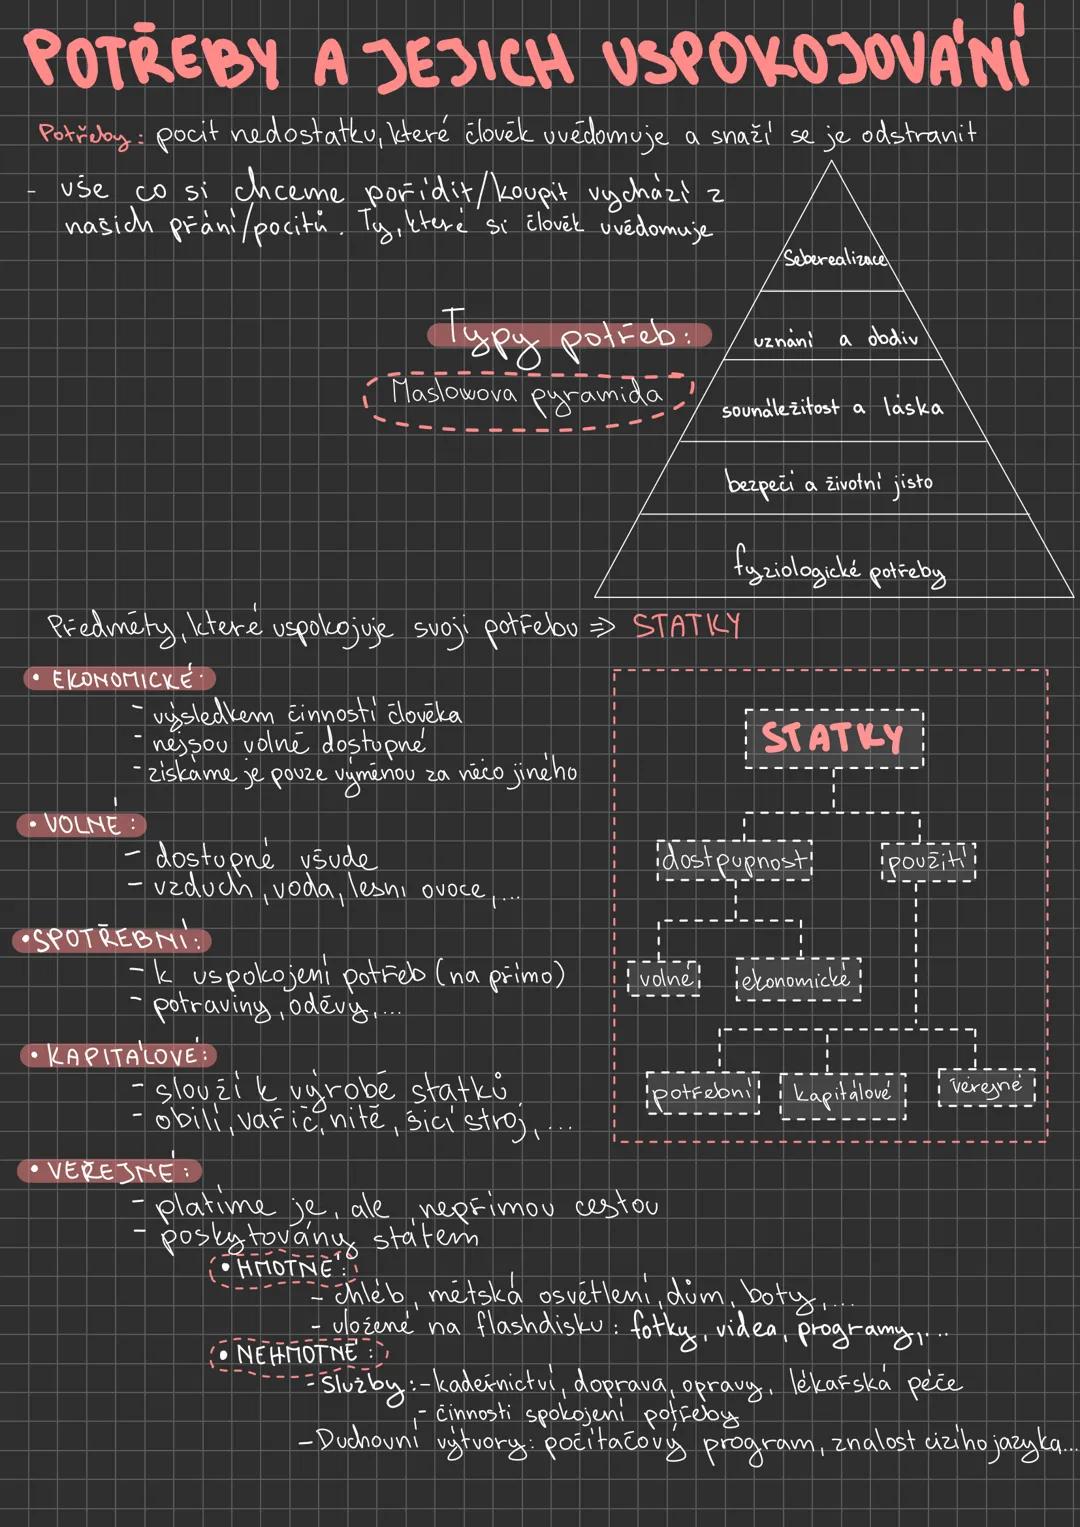 POTŘEBY A JEJICH USPOKOJOVÁNÍ
Potřeby: pocit nedostatku, které člověk uvědomuje a snaží se je odstranit
- vše co si chceme pořídit/koupit vychází z
našich přání/pocitů. Ty, které si člověk uvědomuje
Seberealizace
Typy potřeb:
uznání a obdiv
Maslowova pyramida
sounáležitost a láska
bezpečí a životní jisto
fyziologické potřeby
Předměty, které uspokojuje svoji potřebu => STATKY
• EKONOMICKÉ:
- výsledkem činností člověka
- nejsou volně dostupné
- získáme je pouze výměnou za něco jiného
• VOLNÉ:
- dostupné všude
- vzduch, voda, lesní ovoce,...
• SPOTŘEBNÍ:
- k uspokojení potřeb (na přímo)
- potraviny, oděvy,...
• KAPITÁLOVÉ:
- slouží k výrobě statků
- obilí, vařič, nitě, šicí stroj,...
STATKY
dostpupnost
použití
volné
ekonomické
potřební
kapitálové
veřejné
• VEŘEJNÉ:
- platíme je, ale nepřímou cestou
- poskytovány státem
• HMOTNÉ:
- chléb, mětská osvětlení, dům, boty,...
- uložené na flashdisku: fotky, videa, programy,...
• NEHMOTNÉ:
- Služby: - kadeřnictví, doprava, opravy, lékařská péče
- činnosti spokojení potřeby
- Duchovní výtvory: počítačový program, znalost cizího jazyka...